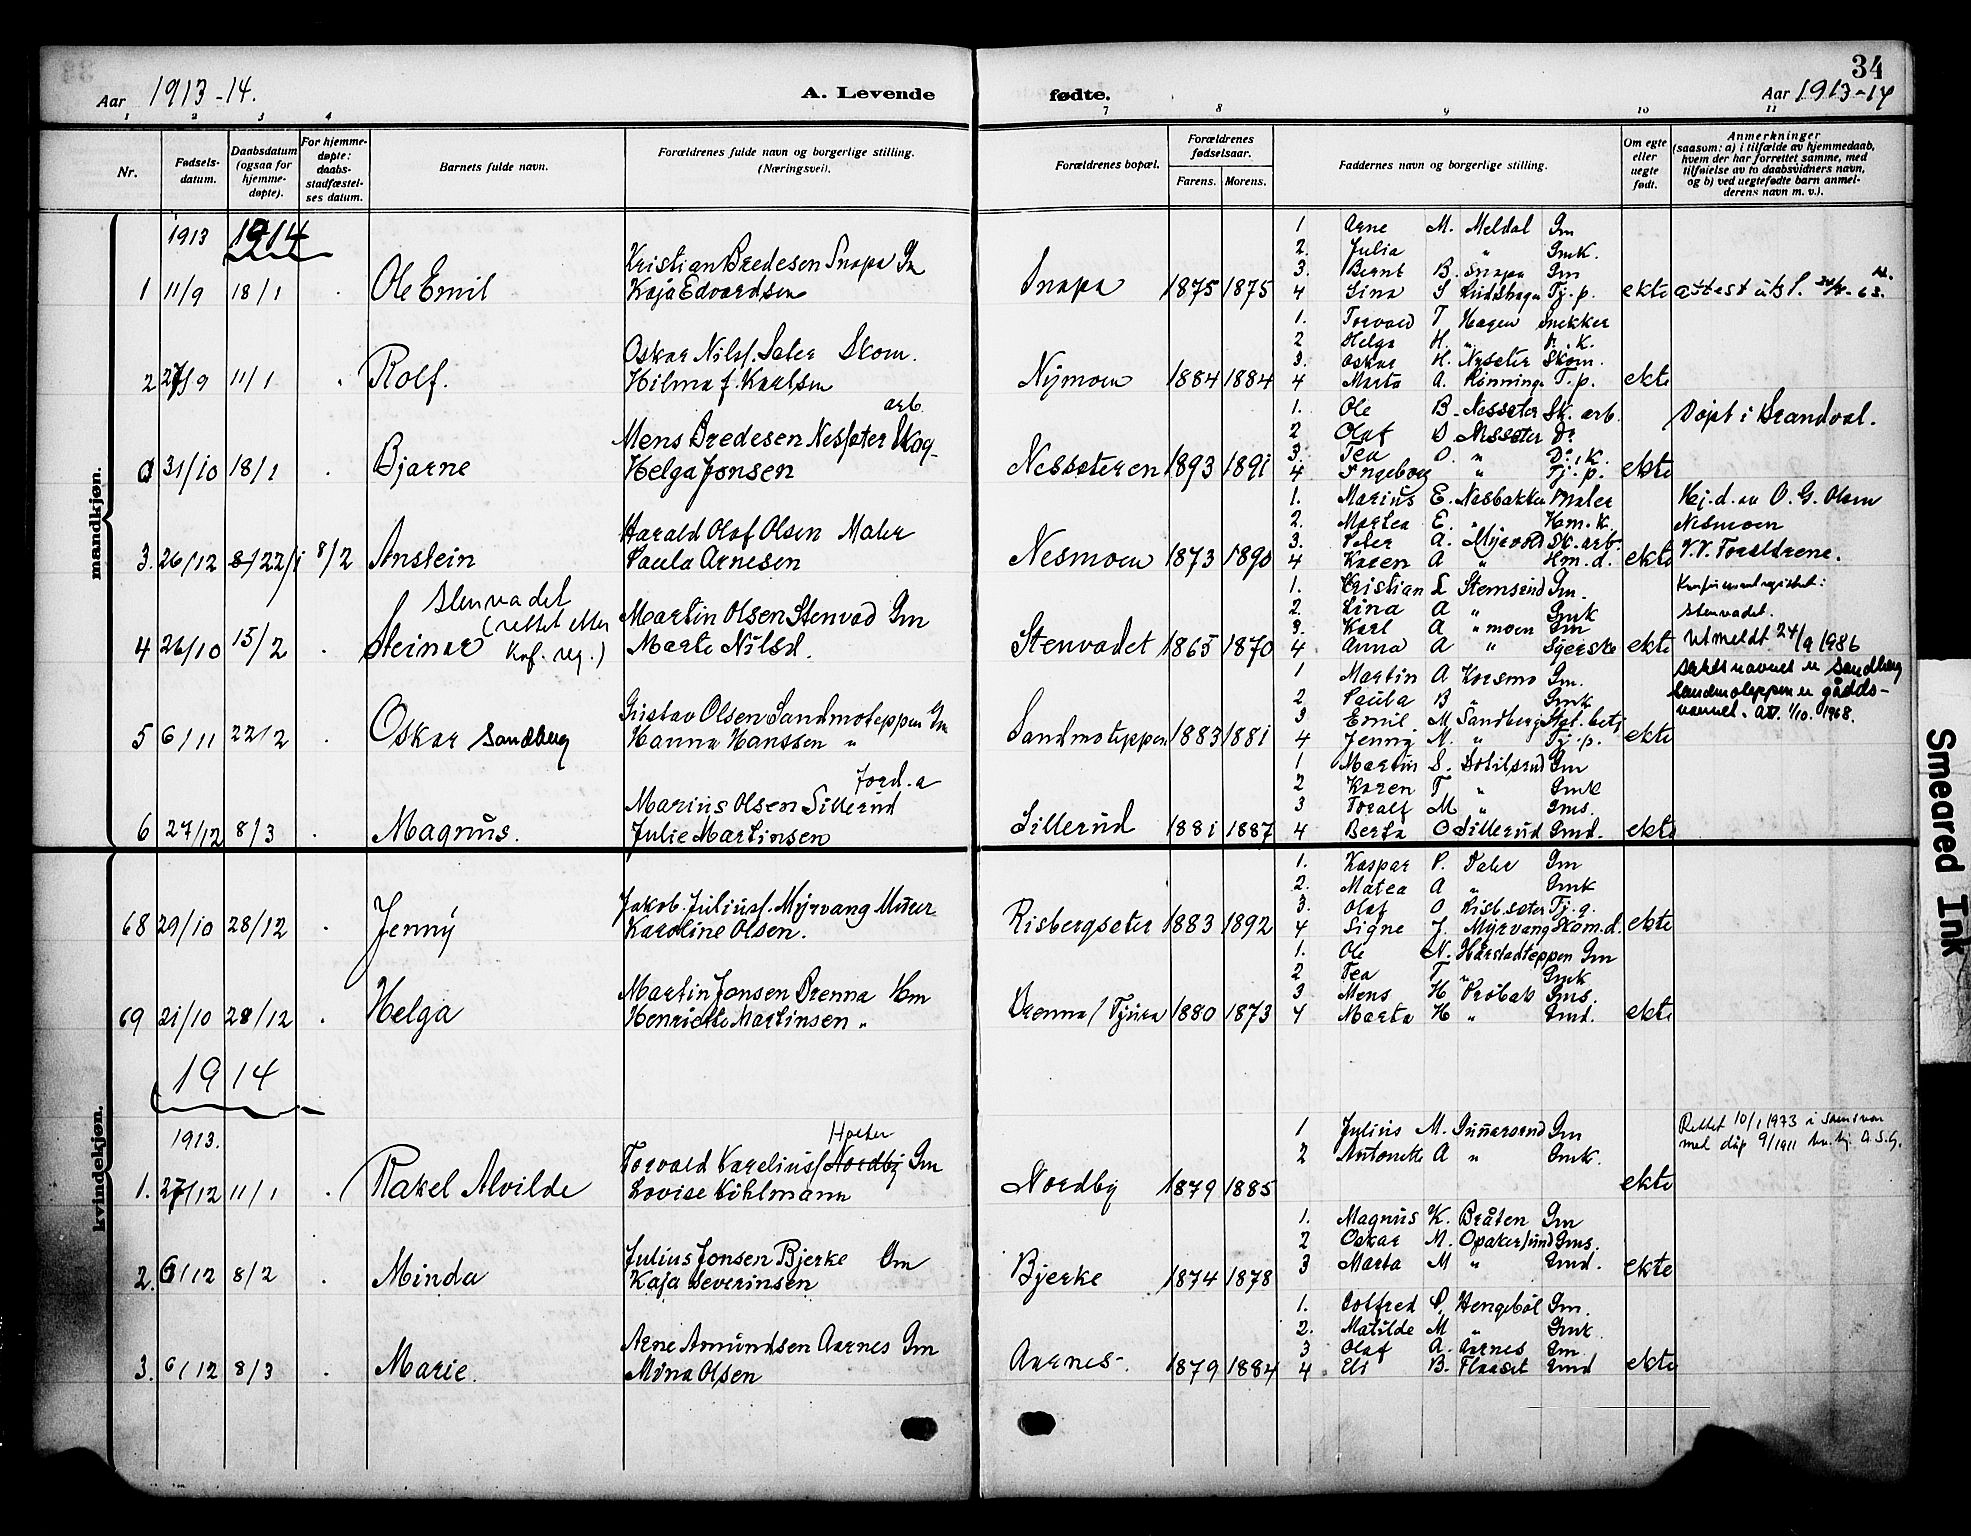 34
Aar 1913-14. A. Levende fødte. Aar 1913-14
1 2 3 4 7 8 9 10 11
Nr.
Fødsels-
datum.
Daabsdatum
(ogsaa for
hjemme-
døpte).
For hjemme-
døpte:
daabs-
stadfæstel-
ses datum.
Barnets fulde navn.
Forældrenes fulde navn og borgerlige stilling.
(Næringsvei).
Forældrenes bopæl.
Forældrenes
fødselsaar.
Farens. Morens.
Faddernes navn og borgerlige stilling.
Om egte
eller
uegte
født.
Anmerkninger
(saasom: a) i tilfælde av hjemmedaab,
hvem der har forrettet samme, med
tilføielse av to daabsvidners navn,
og b) ved uegtefødte barn anmel-
derens navn m. v.).
mandkjøn.
1913 1914
1 11/9 18/1 Ole Emil
Kristian Bredesen Snapa Gm
Kaja Edvardsen
Snapa 1875 1875
1 Arne M. Meldal Gm
2. Julia " Gmk.
3. Bernt B. Snapa Gm
4 Gina S Tj. p.
ekte attest
2 27/9 11/1 Rolf.
Oskar Nilss. Sater Skom.
Hilma f. Karlsen
Nymoen 1884 1884
1. Torvald T Hagen Snekker
2 Helga H. " K.
3. Oskar H. Nyseter Skom.
4 Marta A. Rønninge T.p.
ekte
31/10 18/1 Bjarne
arb.
Mens Bredesen Nessæter Skog-
Helga Jonsen
Nesseteren 1893 1891
1. Ole B. Nesseter Sk. arb.
2 Olaf B Nesseter Do
3. Tea O. " Do. K.
4 Ingeborg " Tj. p.
ekte
Døpt i Brandval.
3. 26/12 22/1 8/2 Anstein
Harald Olaf Olsen Maler
Paula Arnesen
Nesmoen 1873 1890
1. Marius E. Nesbakken Maler
2. Martea E. " Hm. k.
3. Peter A. Myrvold Sk. arb.
4 Karen A " Hm. d.
ekte
Hj. d. av O. G. Olsen
Nesmoen
V.V. Forældrene.
4 26/10 15/2 Steinar
Stenvadet
(rettet etter
Knf. reg.)
Martin Olsen Stenvad Gm
Marte Nilsd.
Stenvadet 1865 1870
1. Kristian L Stemsrud Gm.
2. Lina A " Gmk
3. Karl A " moen Gm
4 Anna A " Syerske
ekte
Konfirmantregistret:
Stenvadet.
Utmeldt 24/9 1986
5 6/11 22/2 Oskar Sandberg
Gustav Olsen Sandmoteppen Gm
Hanna Hanssen "
Sandmoteppen 1883 1881
1 Martin A Korsmo Gm.
2 Paula B " Gmk
3 Emil M Sandberg betj
4 Jenny M. " Tj. p.
ekte
Slektsnavnet er Sandberg
Sandmoteppen er gårds-
navnet. 1/10. 1968.
6 27/12 8/3 Magnus.
Jord. a
Marius Olsen Sillerud
Julie Martinsen
Sillerud 1881 1887
1 Martin S. Gm
2 Karen T " Gmk
3 Toralf M " Gms.
4 Berta O Sillerud Gmd.
ekte
kvindekjøn.
68 29/10 28/12 Jenny
Jakob Juliuss. Myrvang Murer
Karoline Olsen.
Risbergseter 1883 1892
1. Kaspar P. Daler Gm
2. Matea A " Gmk
3. Olaf O Risb.seter Tj. g.
4 Signe J. Myrvang Skom. d.
ekte
69 21/10 28/12 Helga
Martin Jonsen Brenna Hm
Henriette Martinsen "
Brenna/Tjura 1880 1873
1. Ole N. Harstadteppen Gm
2 Tea T. " Gmk
3 Mens H Gms.
4 Marta H " Gmd.
ekte
1914
1913.
1. 27/12 11/1 Rakel Alvilde
Holter
Torvald Kareliuss Nordby Gm
Lovise Kihlmann
Nordby 1879 1885
1 Julius M. Gunnarsrud Gm
2 Antonette A " Gmk.
ekte
Rettet 10/1 1973 i samsvar
med dåp 9/1911
2. 6/12 8/2 Minda
Julius Jonsen Bjerke Gm
Kaja Severinsen
Bjerke 1874 1878
1. Magnus K. Bråten Gm
2 Oskar M. Opakersund Gms.
3 Marta M " Gmd.
ekte
3. 6/12 8/3 Marie.
Arne Amundsen Aarnes Gm
Mina Olsen
Aarnes. 1879 1884
1. Solfred P. Hengebøl Gm.
2. Matilde M " Gmk
3 Olaf A. Aarnes Gm
4 Eli B. Flaaset Gmd
ekte
Smeared Ink